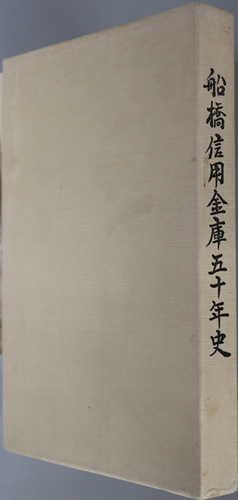 船橋信用金庫五十年史